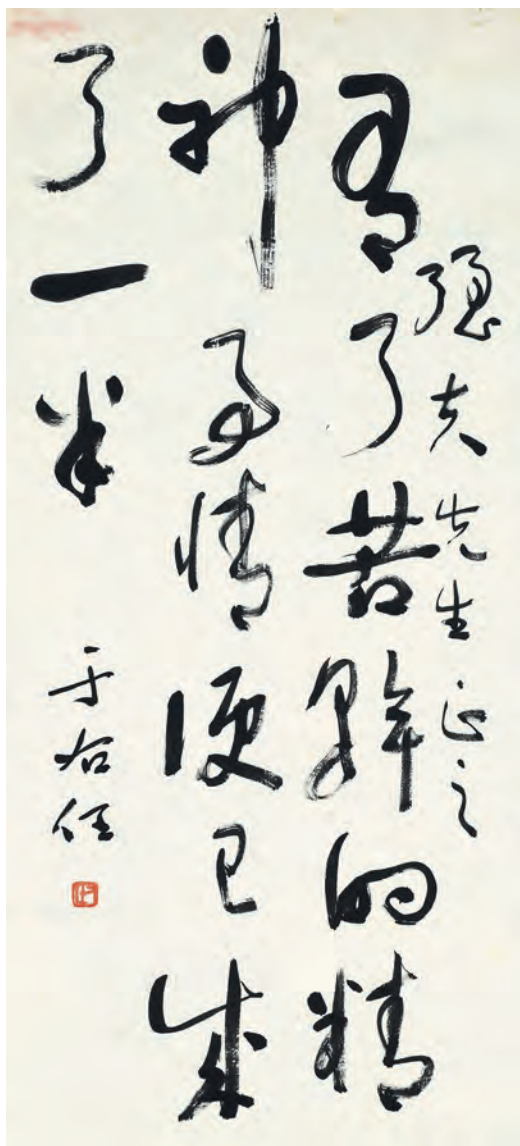 先生正之
有了苦幹的精
神事情便已成
了一半
于右任